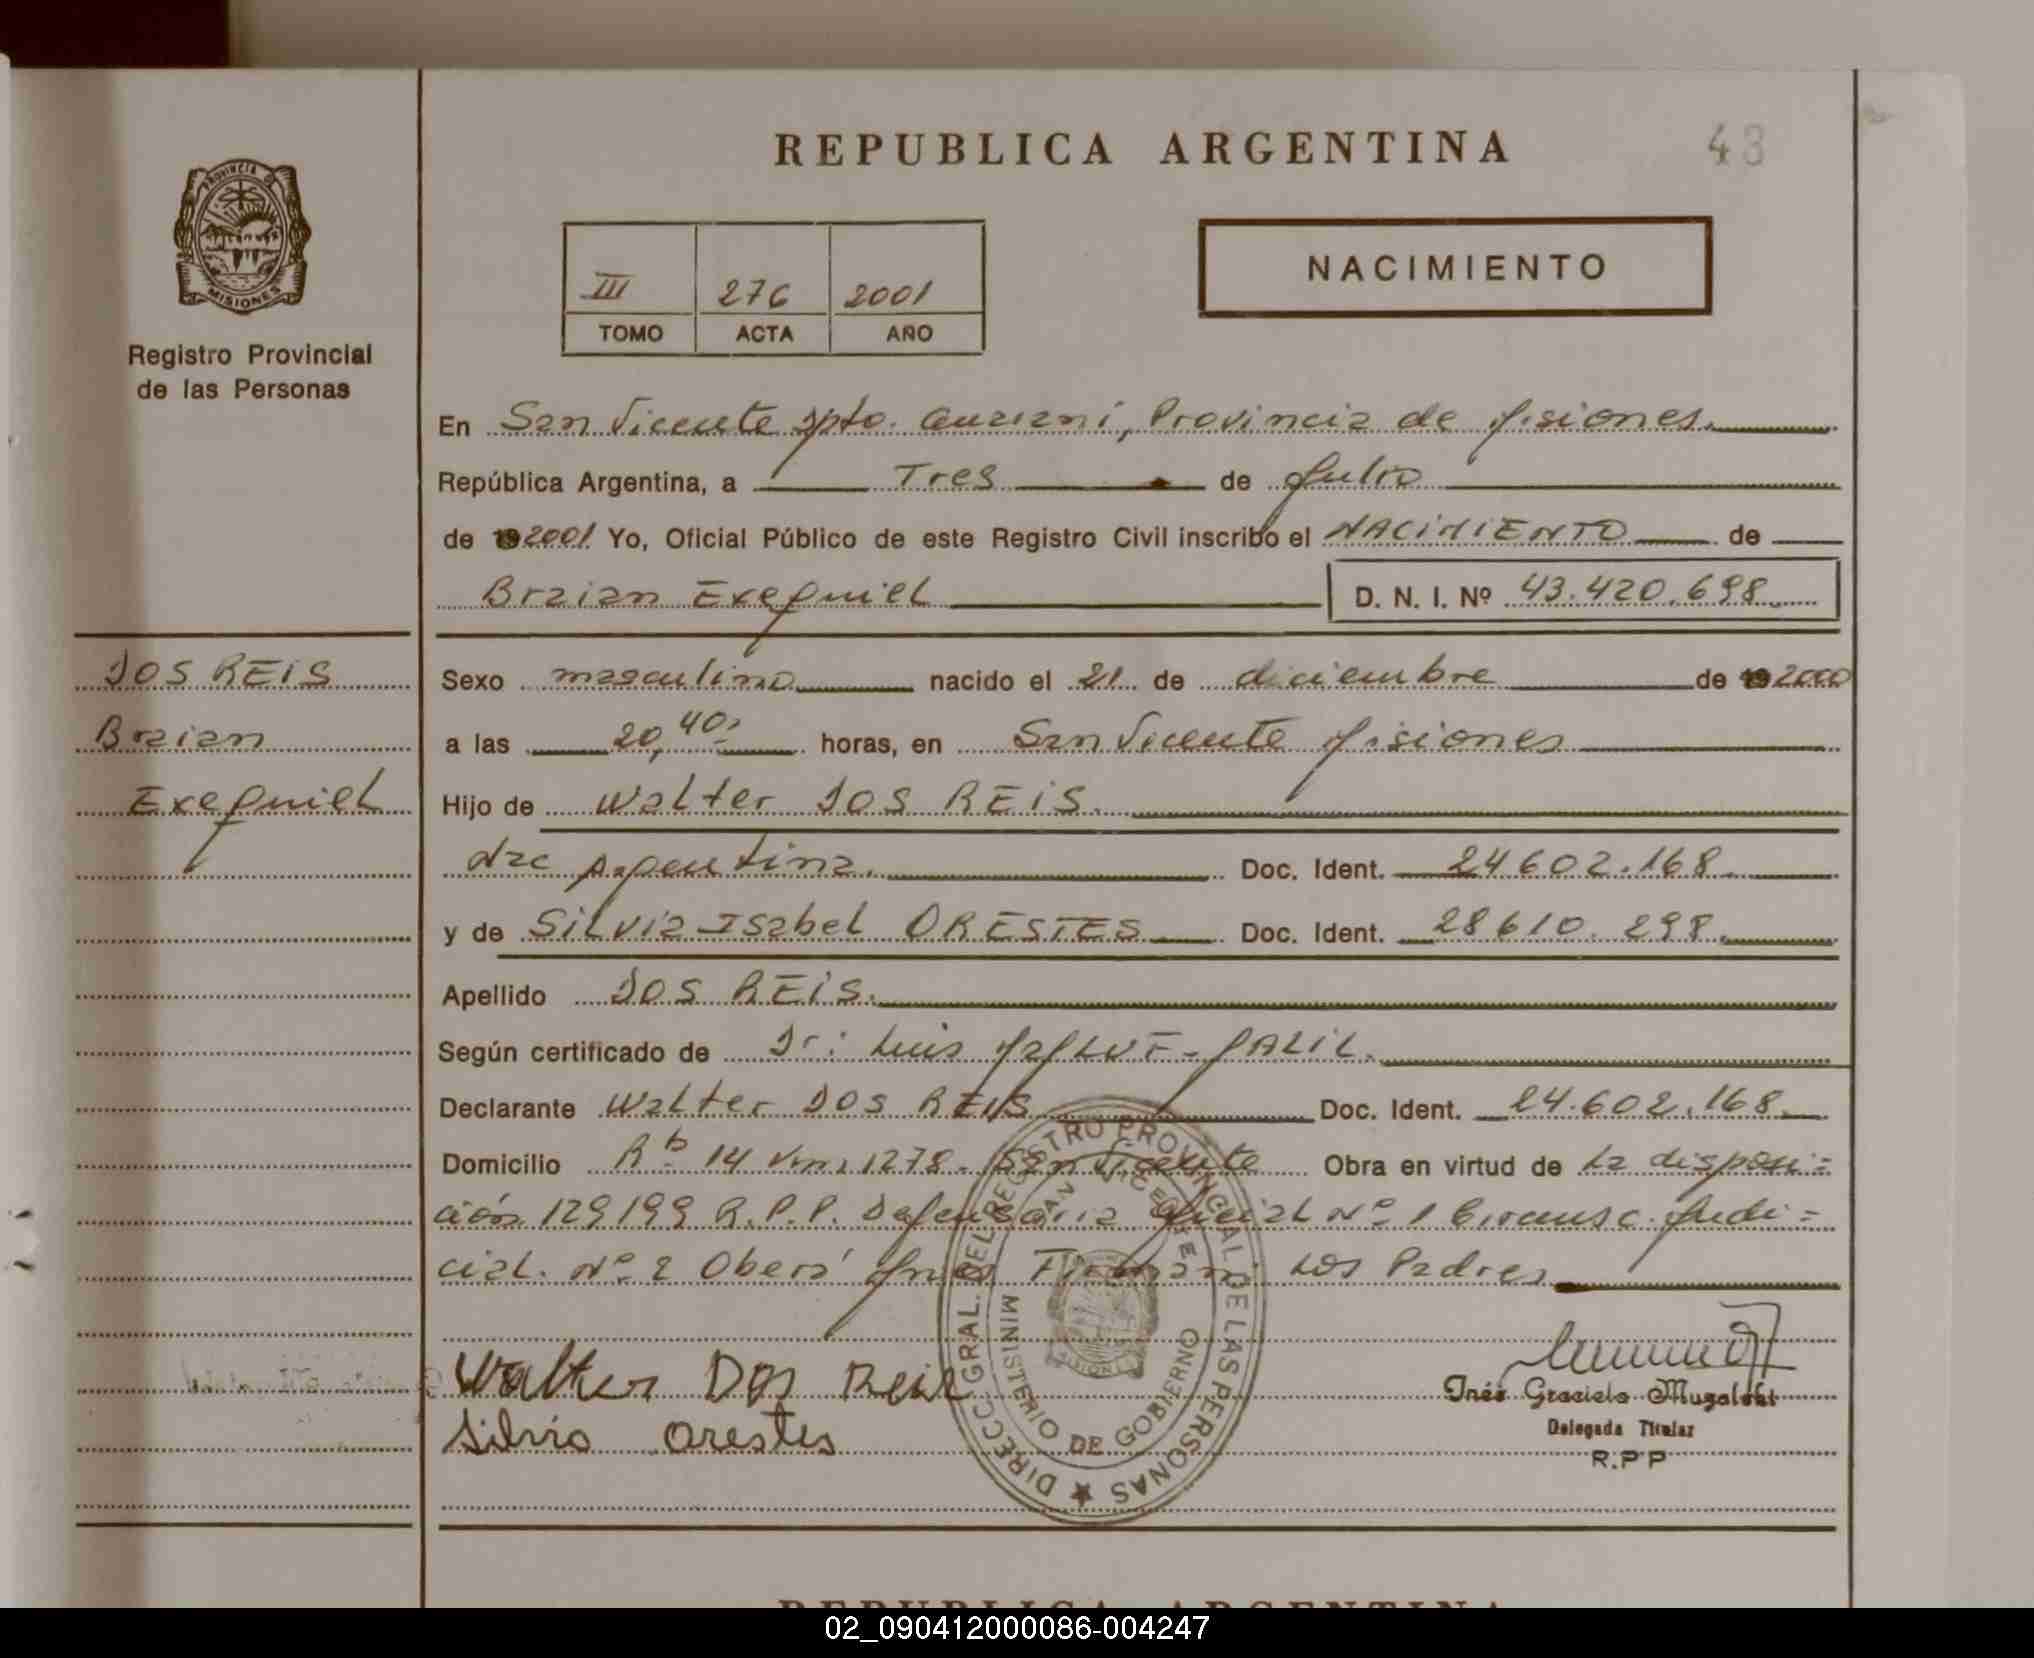 REPUBLICA ARGENTINA
43
PROVINCIA DE
MISIONES
Registro Provincial
de las Personas
III 276 2001
TOMO ACTA AÑO
NACIMIENTO
En San Vicente Dpto. Guarani, Provincia de Misiones.
República Argentina, a Tres de Julio
de 19 2001 Yo, Oficial Público de este Registro Civil inscribo el NACIMIENTO de
Braian Exequiel D. N. I. Nº 43.420.698
DOS REIS
Braian
Exequiel
Sexo masculino nacido el 21 de diciembre de 19 2000
a las 20,40 horas, en San Vicente Misiones
Hijo de Walter DOS REIS.
Nac Argentina. Doc. Ident. 24602.168
y de Silvia Isabel ORESTES Doc. Ident. 28610.298
Apellido DOS REIS.
Según certificado de Dr: Luis
Declarante Walter DOS REIS Doc. Ident. 24.602.168
Domicilio 14 Km, 1278. San Vicente Obra en virtud de La disposi=
ción 129199 R.P.P. Defensoria Nº 1 Circunsc. Judi=
cial. Nº 2 Oberá Firman Los Padres
Walter Dos Reis
Silvia Orestes
DIRECC. GRAL. DEL REGISTRO PROVINCIAL DE LAS PERSONAS
SAN VICENTE
MINISTERIO DE GOBIERNO
MISIONES
Inés Graciela
Delegada Titular
R.P P
REPUBLICA ARGENTINA
02_090412000086-004247